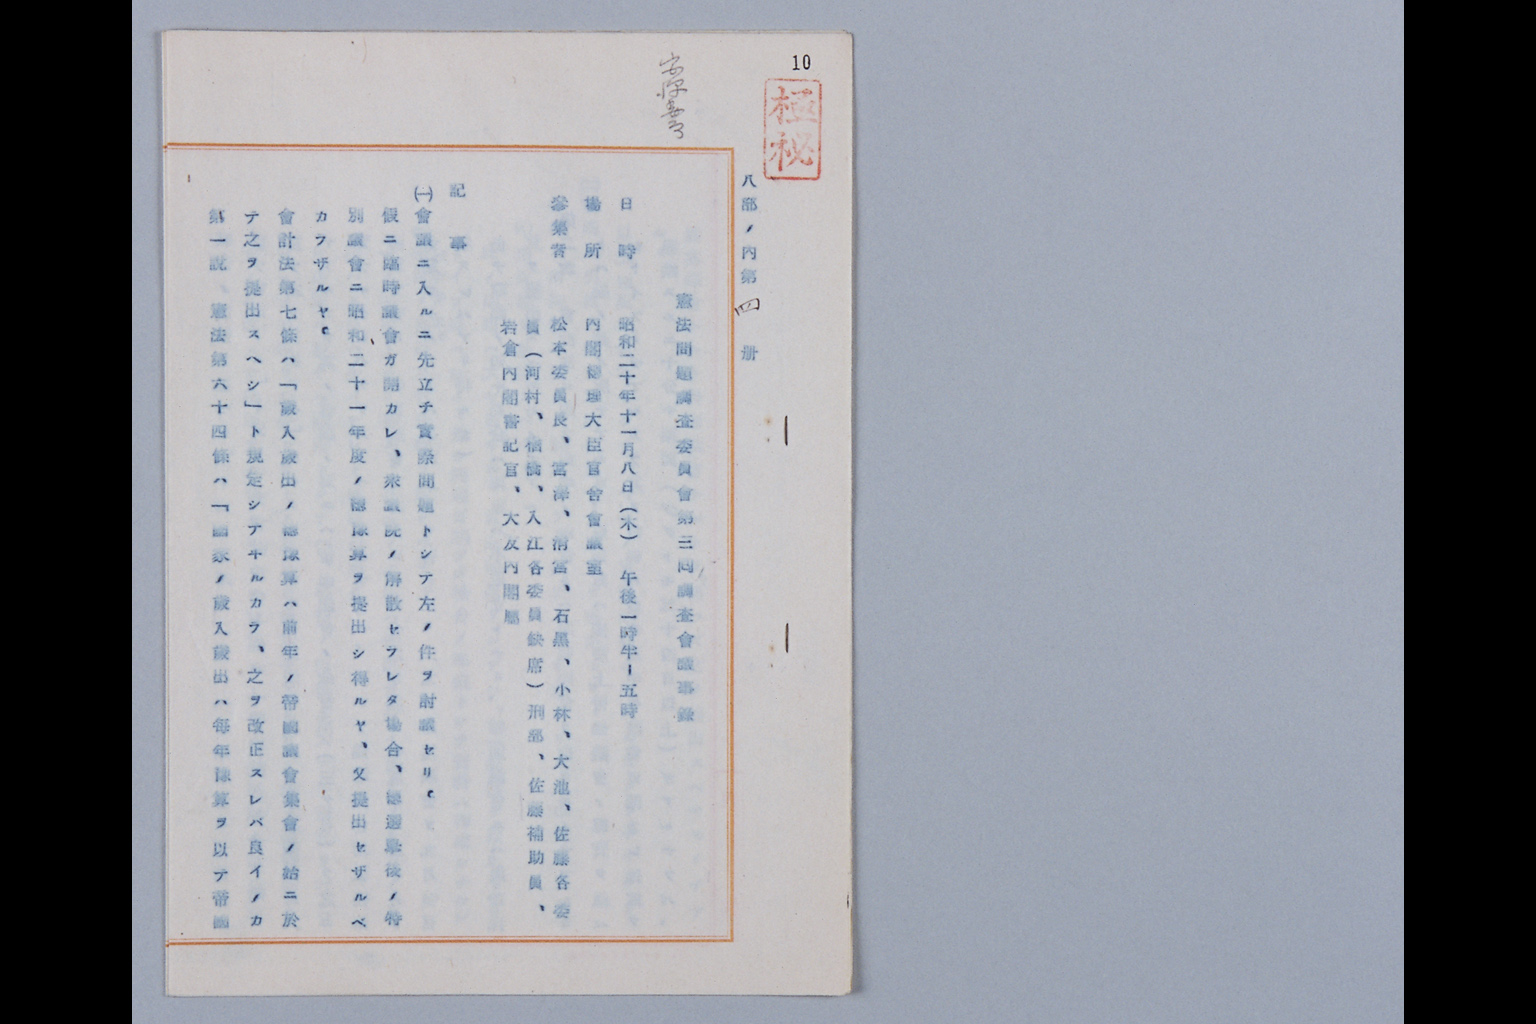 10
極秘
八部ノ内第四册
憲法問題調査委員會第三回調査會議事錄
日時 昭和二十年十一月八日(木) 午後一時半ー五時
場所 內閣總理大臣官舍會議室
參集者 松本委員長、宮澤、淸宮、石黑、小林、大池、佐藤各委
員(河村、楢橋、入江各委員缺席)刑部、佐藤補助員、
岩倉內閣書記官、大友內閣屬
記事
㈠會議ニ入ルニ先立チ實際問題トシテ左ノ件ヲ討議セリ。
假ニ臨時議會ガ開カレ、衆議院ノ解散セラレタ場合、總選擧後ノ特
別議會ニ昭和二十一年度ノ總豫算ヲ提出シ得ルヤ、又提出セザルベ
カラザルヤ。
會計法第七條ハ「歲入歲出ノ總豫算ハ前年ノ帝國議會集會ノ始ニ於
テ之ヲ提出スヘシ」ト規定シテヰルカラ、之ヲ改正スレバ良イノカ
第一說、憲法第六十四條ハ「國家ノ歲入歲出ハ每年豫算ヲ以テ帝國